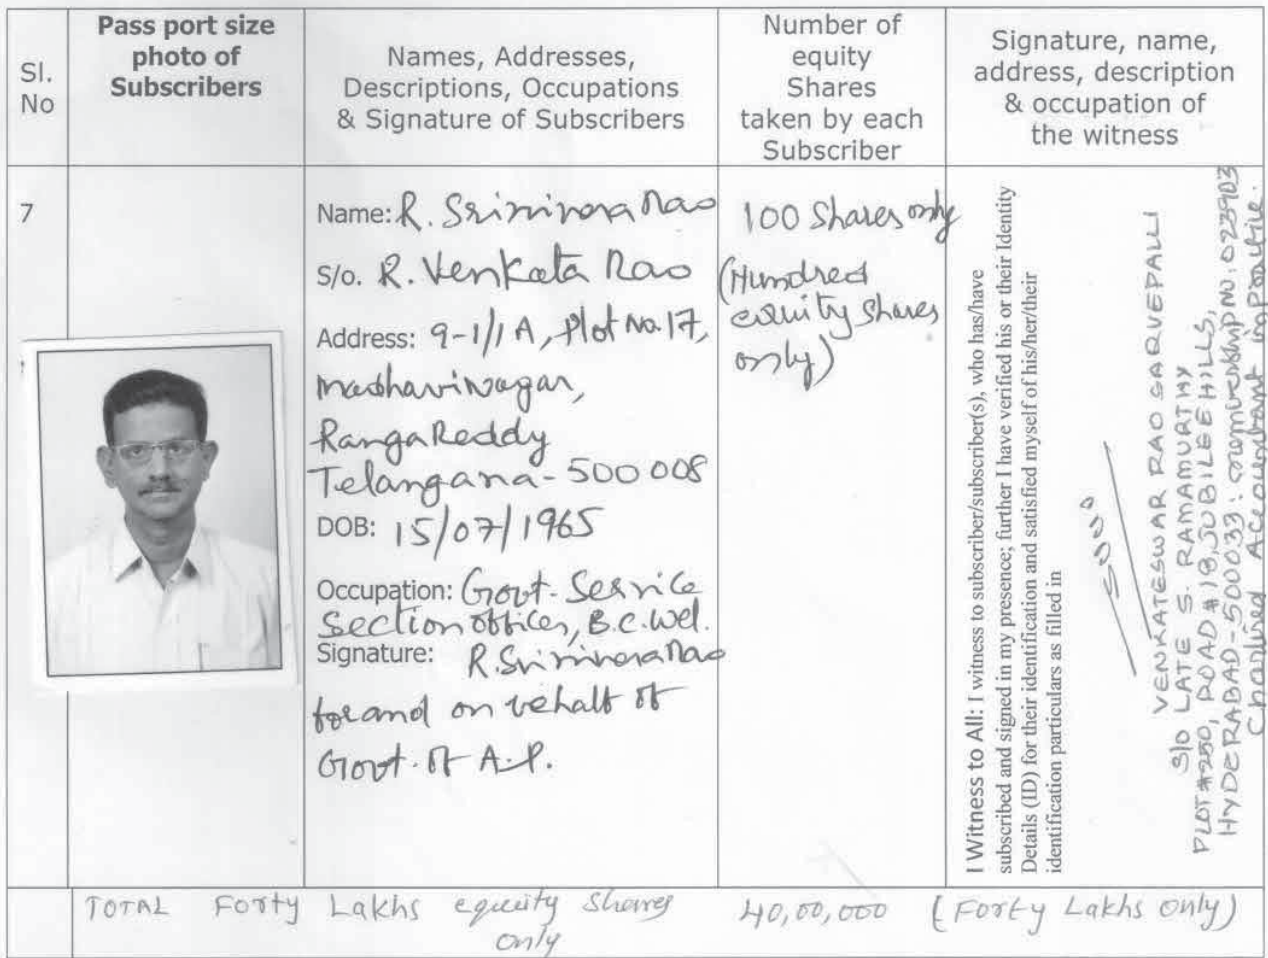 Sl.
No
Pass port size
photo of
Subscribers
Names, Addresses,
Descriptions, Occupations
& Signature of Subscribers
Number of
equity
Shares
taken by each
Subscriber
Signature, name,
address, description
& occupation of
the witness
7
Name: R. Srinivasa Rao
S/o. R. Venkata Rao
Address: 9-1/1A, Plot No. 17,
Madhavinagar,
RangaReddy
Telangana - 500 008
DOB: 15/07/1965
Occupation: Govt. Service
Section officer, B.C. Wel.
Signature: R. Srinivasa Rao
for and on behalf of
Govt. of A.P.
100 Shares only
(Hundred
equity shares
only)
I Witness to All: I witness to subscriber/subscriber(s), who has/have
subscribed and signed in my presence; further I have verified his or their Identity
Details (ID) for their identification and satisfied myself of his/her/their
identification particulars as filled in
VENKATESWAR RAO SARVEPALLI
S/O LATE S. RAMAMURTHY
PLOT #250, ROAD #18, JUBILEE HILLS,
HYDERABAD-500033: membership NO: 023903
Chartered Accountant in Practice.
TOTAL Forty Lakhs equity Shares 40,00,000 (Forty Lakhs Only)
only